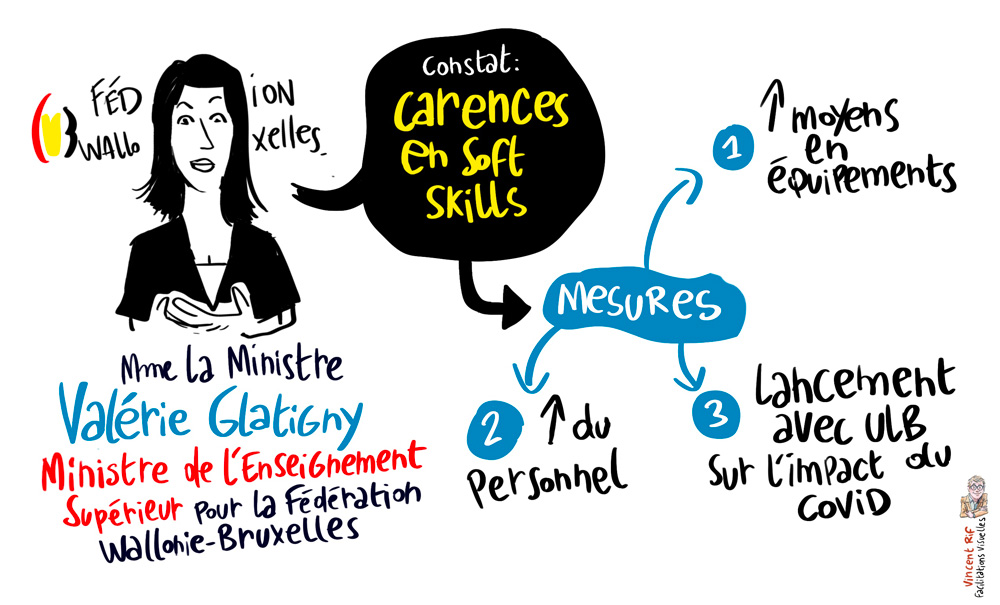 FÉD ION
WALLO xelles
Constat:
Carences
en Soft
Skills
Mme la Ministre
Valérie Glatigny
Ministre de l'Enseignement
Supérieur pour la Fédération
Wallonie-Bruxelles
Mesures
1
↑ moyens
en
équipements
2
↑ du
personnel
3
Lancement
avec ULB
sur l'impact du
Covid
Vincent Rif
Facilitations Visuelles